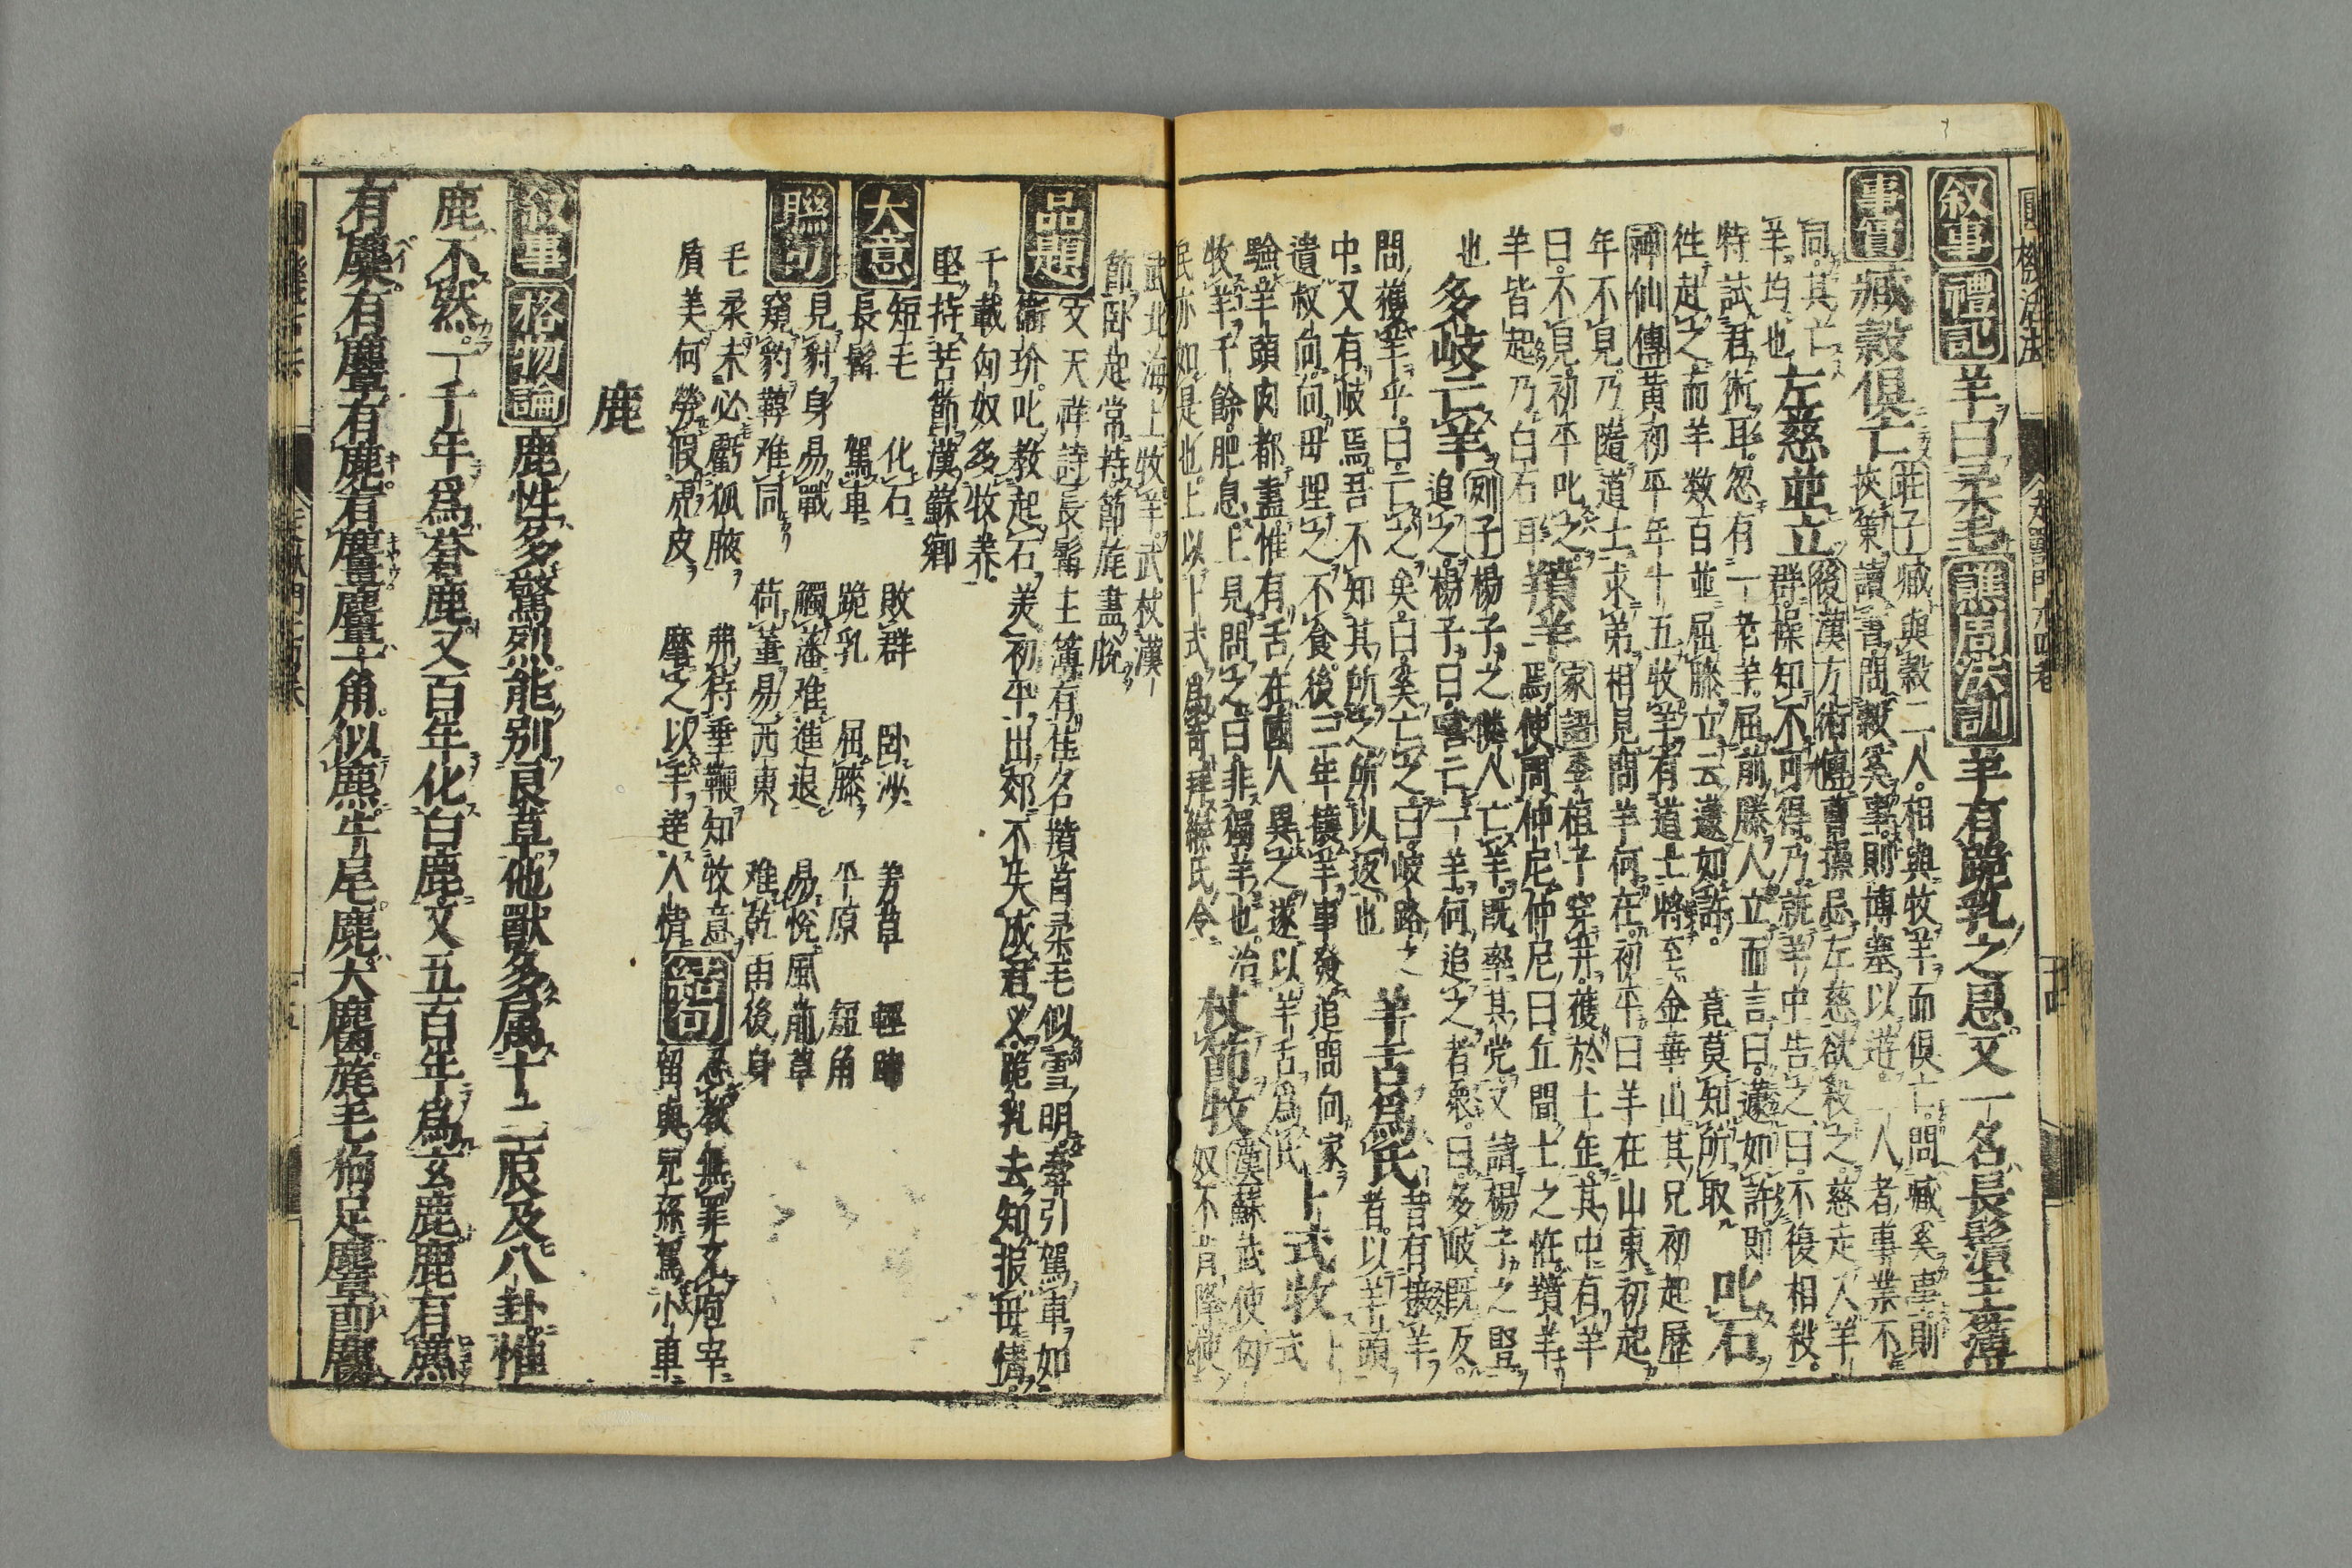 叙事 禮記 羊曰柔毛 譙周法訓 羊有跪乳之恩又一名長鬚主簿
事實 臧穀俱亡 莊子 臧與穀二人相與牧羊而俱亡問臧奚事則
挾策讀書問穀奚事則博塞以遊二人者事業不
同其亡羊均也 左慈並立 後漢方術傳 曹操忌左慈欲殺之慈走入羊
群操知不可得乃就羊中告之曰不復相殺
特試君術耳忽有一老羊屈前膝人立而言曰遽如許即
徃赴之而羊數百並屈膝立云遽如許竟莫知所取
叱石 神仙傳 黄初平年十五牧羊有道士將至金華山其兄初起歷
年不見乃隨道士求弟相見問羊何在初平曰羊在山東初起
曰不見初平叱之羊皆起乃白石耳
羵羊 家語 季桓子穿井獲於土缶其中有羊
焉使問仲尼仲尼曰丘聞土之怪羵羊
也 多岐亡羊 列子 楊子之隣人亡羊既率其党又請楊子之竪
追之楊子曰嘻亡一羊何追之者衆曰多岐既反
問獲羊乎曰亡之矣曰奚亡之曰岐路之
中又有岐焉吾不知其所之所以返也
羊舌爲氏 昔有攘羊者以羊頭
遺叔向向母埋之不食後三年攘羊事發追問向家
驗羊頭肉都盡惟有舌在國人異之遂以羊舌爲氏
卜式牧 卜式
牧羊千餘肥息上見問之曰非獨羊也治
民亦如是也上以卜式爲奇拜緱氏令
杖節牧 漢 蘇武使匈
奴不肯降使
武北海上牧羊武杖漢
節卧起常持節旄盡脱
品題 文天祥詩長髯主簿有佳名羵首柔毛似雪明牽引駕車如
衛玠叱教起石羡初平出郊不失成君义跪乳去知報母情
千載匈奴多牧养
堅持苦節漢蘇卿
大意 短毛 化石 敗群 卧沙 芳草 輕蹄
長髯 駕車 跪乳 屈膝 平原 短角
聯句 見豺身易戰 觸藩难進退 易悦風前草
窺豹鞟难同 荷董易西東 难乾雨後身
毛柔未必虧狐腋 弗待垂鞭知牧意
質美何勞假虎皮 麾之以手達人情
結句 忍教無罪充庖宰
留與兒孫駕小車
鹿
叙事 格物論 鹿性多驚烈能别良草他獸多属十二辰及八卦惟
鹿不然一千年爲蒼鹿又百年化白鹿又五百年爲玄鹿鹿有麃
有麋有麞有麂有麠麞牛角似麃牛尾麂大麕旄毛狗足麞而麛